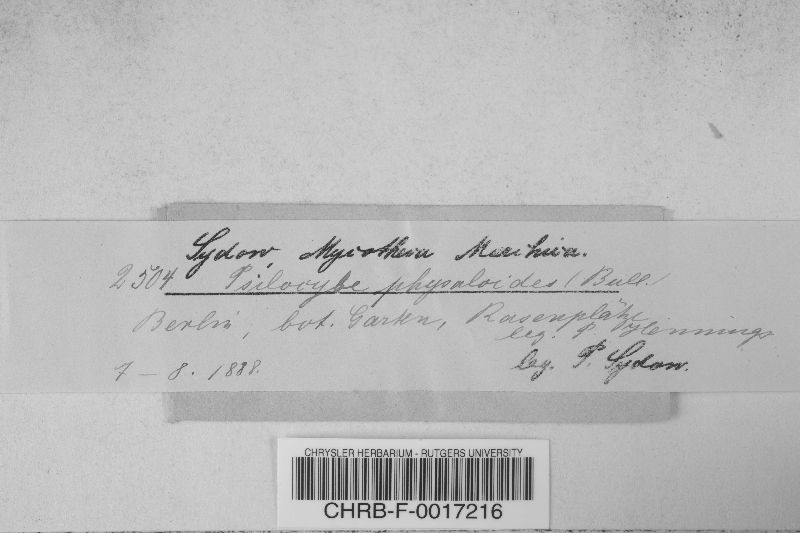 Sydow, Mycotheca Marchica.
2504 Psilocybe physaloides (Bull.)
Berlin, bot. Garten, Rasenplätze
leg. P. Hennings
7 – 8. 1888.
leg. P. Sydow.
CHRYSLER HERBARIUM - RUTGERS UNIVERSITY
CHRB-F-0017216